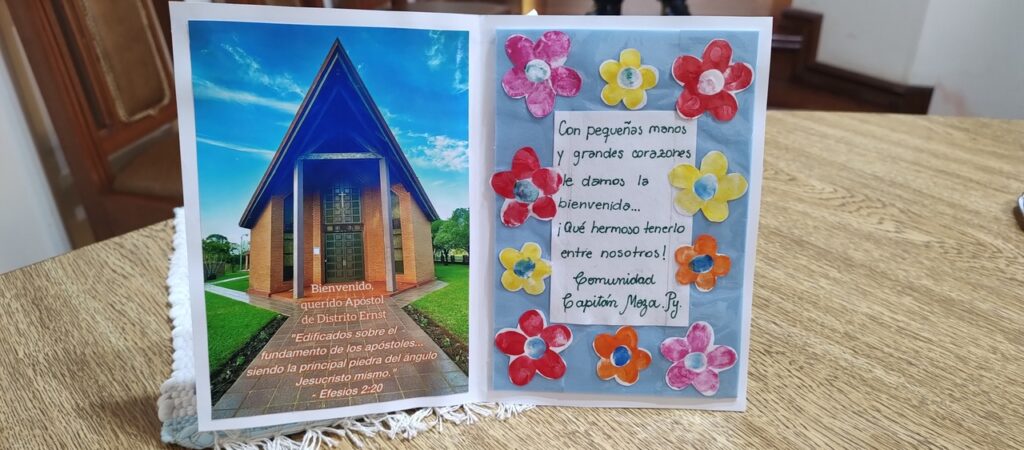 Bienvenido,
querido Apóstol
de Distrito Ernst
"Edificados sobre el
fundamento de los apóstoles...
siendo la principal piedra del ángulo
Jesucristo mismo."
- Efesios 2:20
Con pequeñas manos
y grandes corazones
le damos la
bienvenida...
¡Qué hermoso tenerlo
entre nosotros!
Comunidad
Capitán Meza. Py.